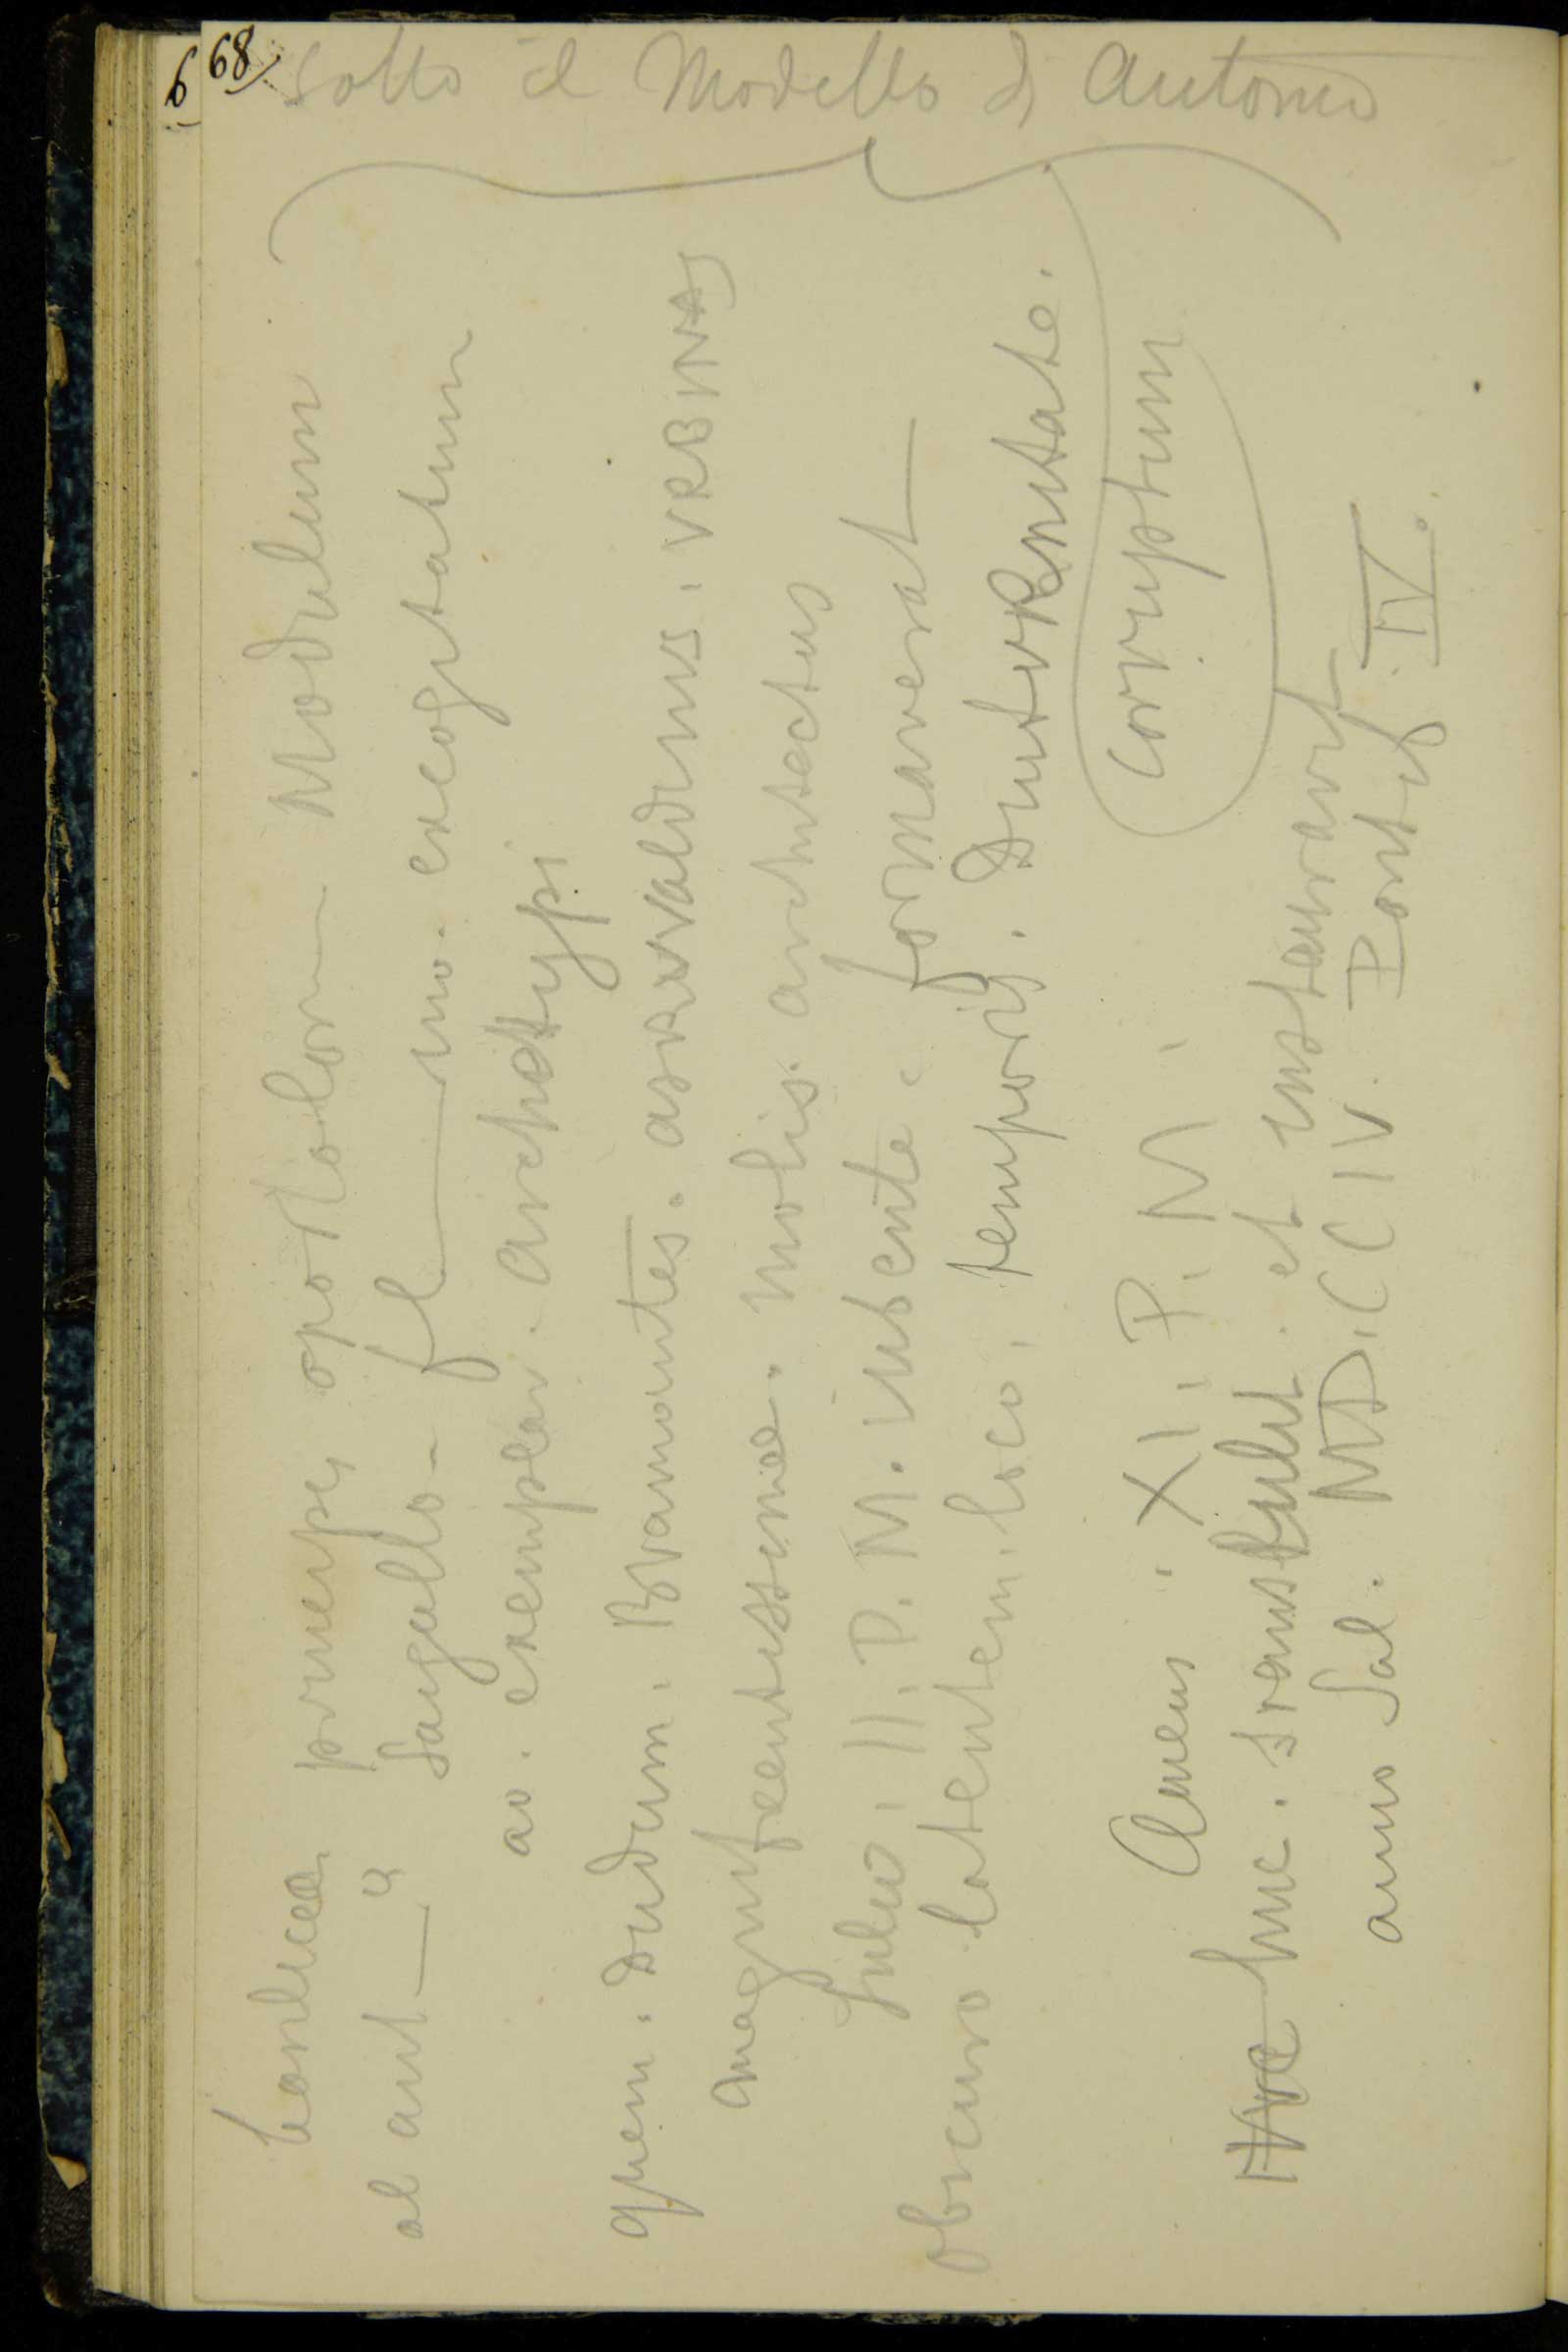 68
6
sotto il Modello di Antonio
basilicae principis apostolorum Modulum
ab ant— a Sangallo – fl— ino. excogitatum
ad. exemplar. archetypi
quem. dudum. Bramantes. asrvvaldinus. VRBINAS
magnificentissimae. molis. architectus
Julio. II. P. M. iubente. formaverat
obscuro latentem. loco. temporis. diuturnitate.
corruptum
Clemens. XI. P. M.
Hvc huc. transtulit. et instauravit
anno Sal. MD.CCIV. Pontif. IV.